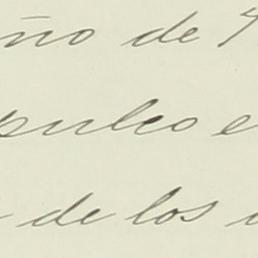 ño de
pulco e
de los